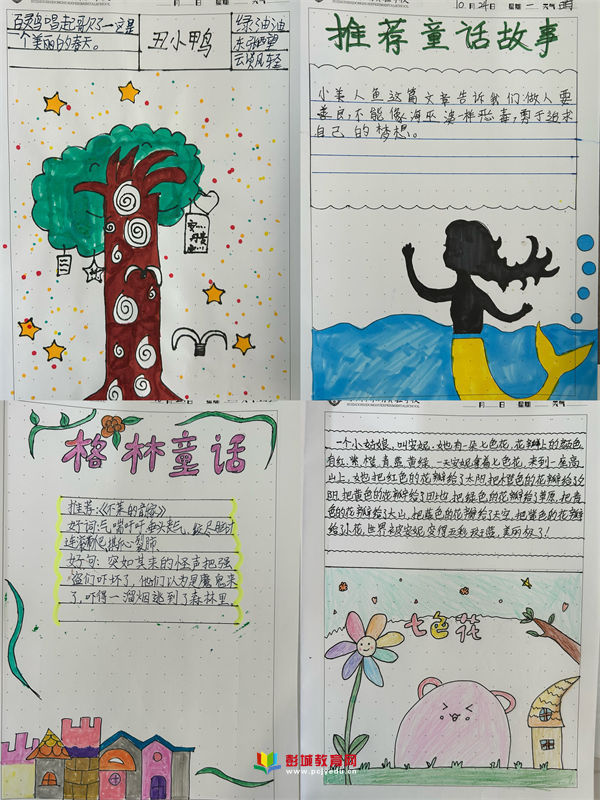 百灵鸟唱起歌儿了,这是
一个美丽的春天。
丑小鸭
绿油油
东张西望
云淡风轻
10月24日 星期二 天气 晴
推荐童话故事
小美人鱼这篇文章告诉我们做人要
善良,不能像海巫婆一样恶毒,勇于追求
自己的梦想。
格林童话
好词:气喘吁吁
连滚带爬 撕心裂肺
好句:突如其来的怪声把强
盗们吓坏了,他们认为是魔鬼来
了,吓得一溜烟逃到了森林里
月 日 星期 天气
一个小姑娘,叫安妮,她有一朵七色花,花瓣上的颜色
有红、紫、橙、青、蓝、黄、绿。一天安妮拿着七色花,来到一座高
山上,她把红色的花瓣给了太阳,把橙色的花瓣给了
阴,把黄色的花瓣给了田地,把绿色的花瓣给了草原,把青
色的花瓣给了大山,把蓝色的花瓣给了天空,把紫色的花瓣
给了小花,世界被安妮变得五彩斑斓,美丽极了!
七色花
彭城教育网
www.pcjyedu.cn